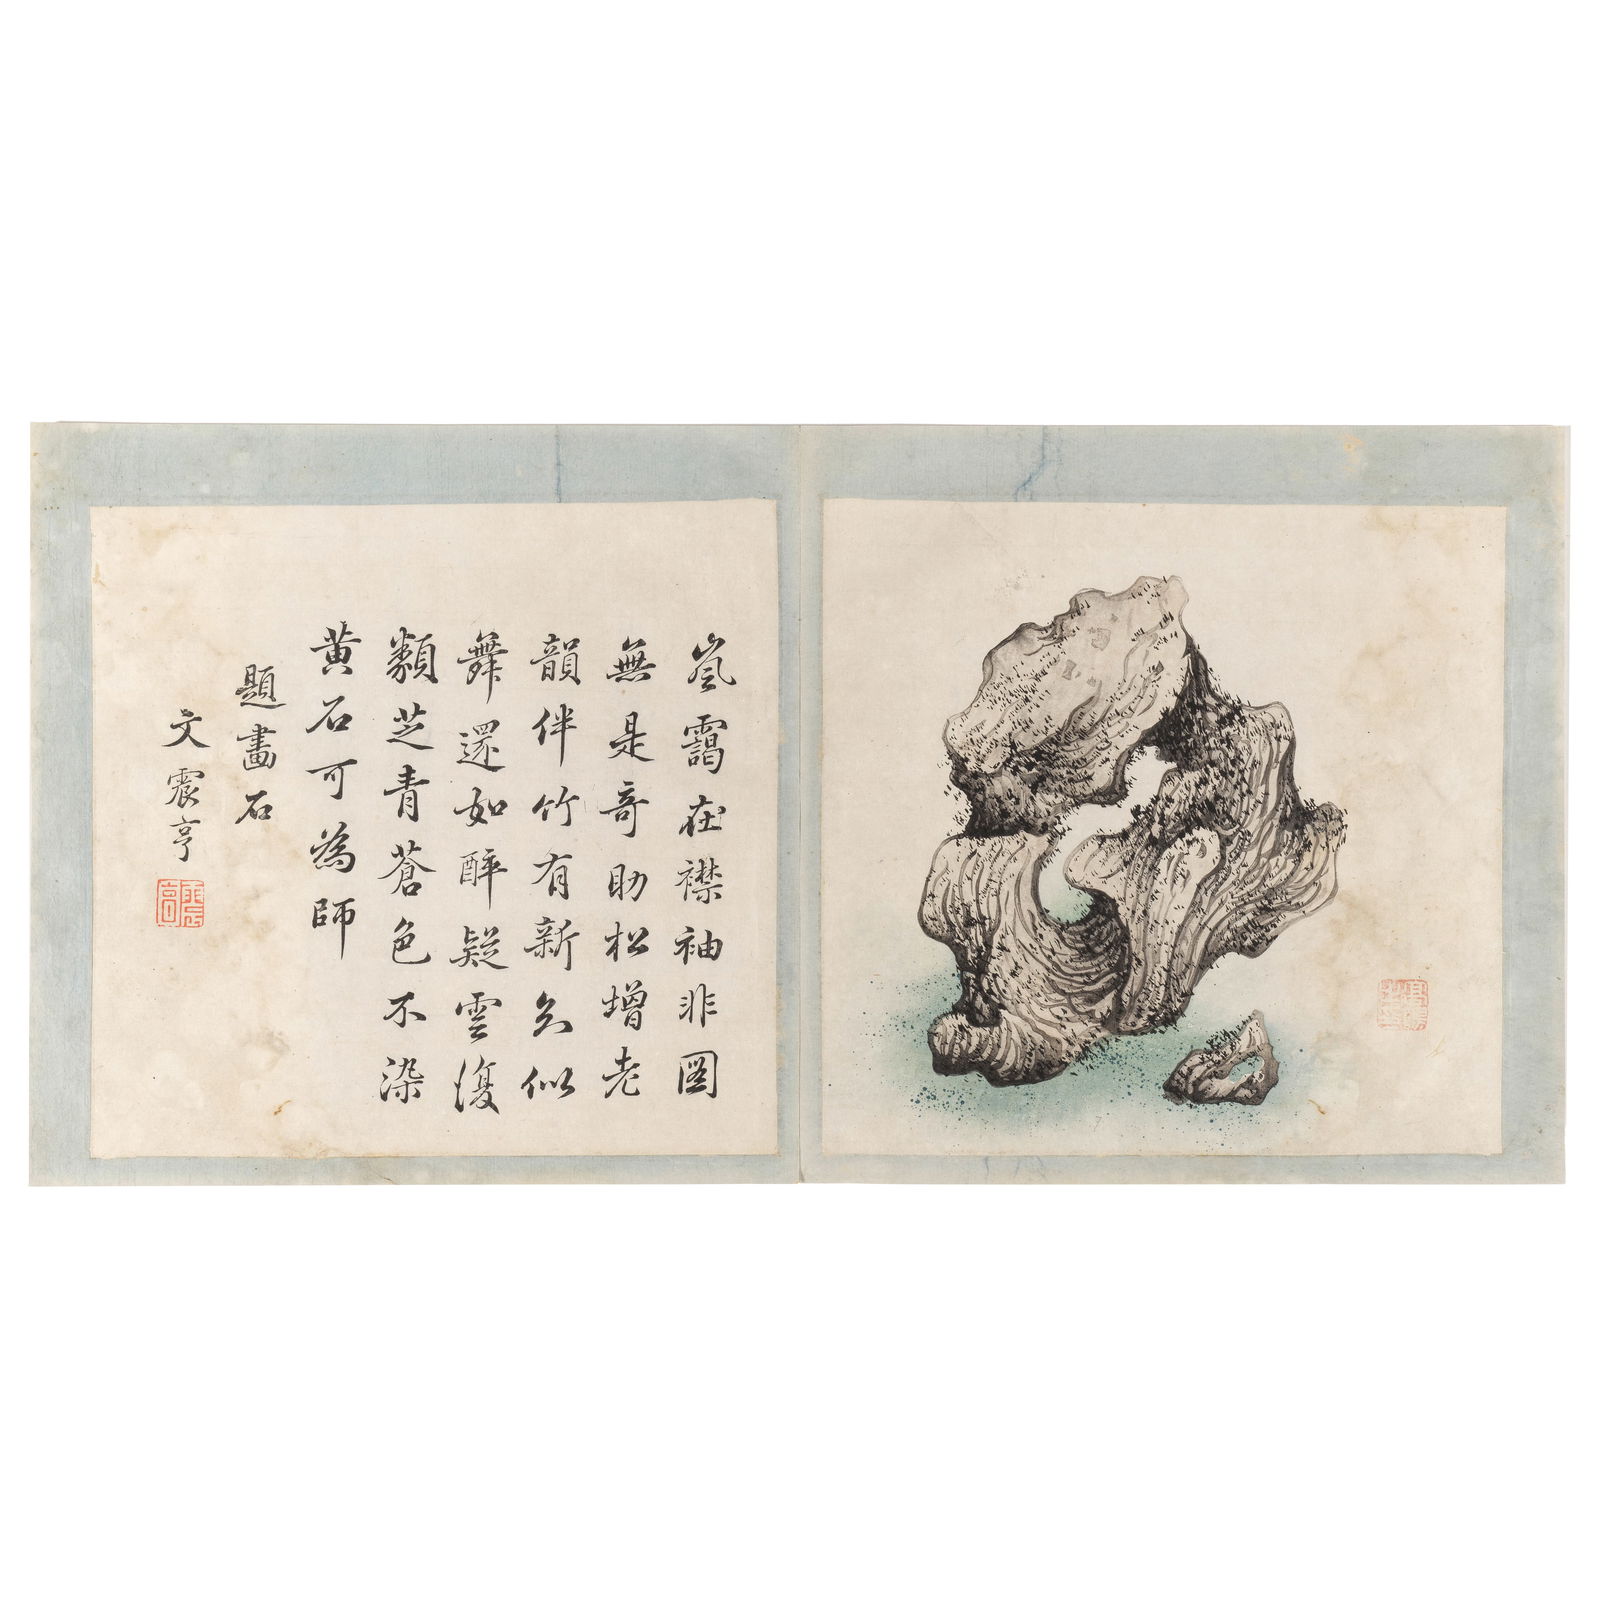 嵐靄在襟袖非圖
無是奇助松增老
韻伴竹有新久似
舞還如醉疑雲復
類芝青蒼色不染
黃石可為師
題畫石
文震亨